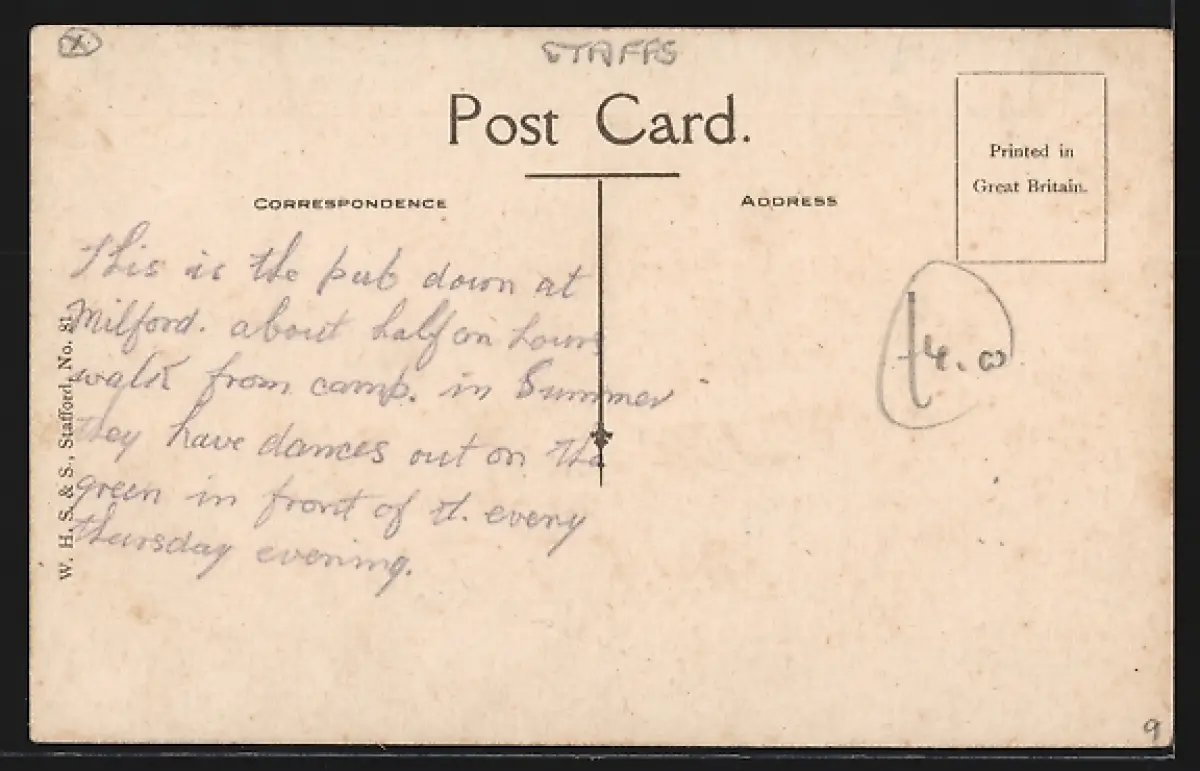 X
STAFFS
Post Card.
Printed in
Great Britain.
CORRESPONDENCE
ADDRESS
This is the pub down at
Milford. about half an hours
walk from camp. in Summer
they have dances out on the
green in front of it. every
thursday evening.
W. H. S. & S., Stafford, No. 81
4.00
9